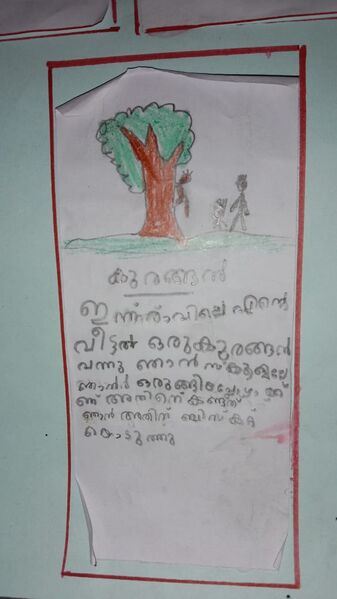 കുരങ്ങൻ
ഇന്ന് രാവിലെ എന്റെ
വീട്ടൽ ഒരുകുരങ്ങൻ
വന്നു ഞാൻ സ്കൂളിലേ
ഞാൻ ഒരുങ്ങിയപ്പോഴാ ക്ക്
ണ് അതിനെ കണ്ടത്
ഞാൻ അതിന് ബിസ്കറ്റ്
കൊടുത്തു